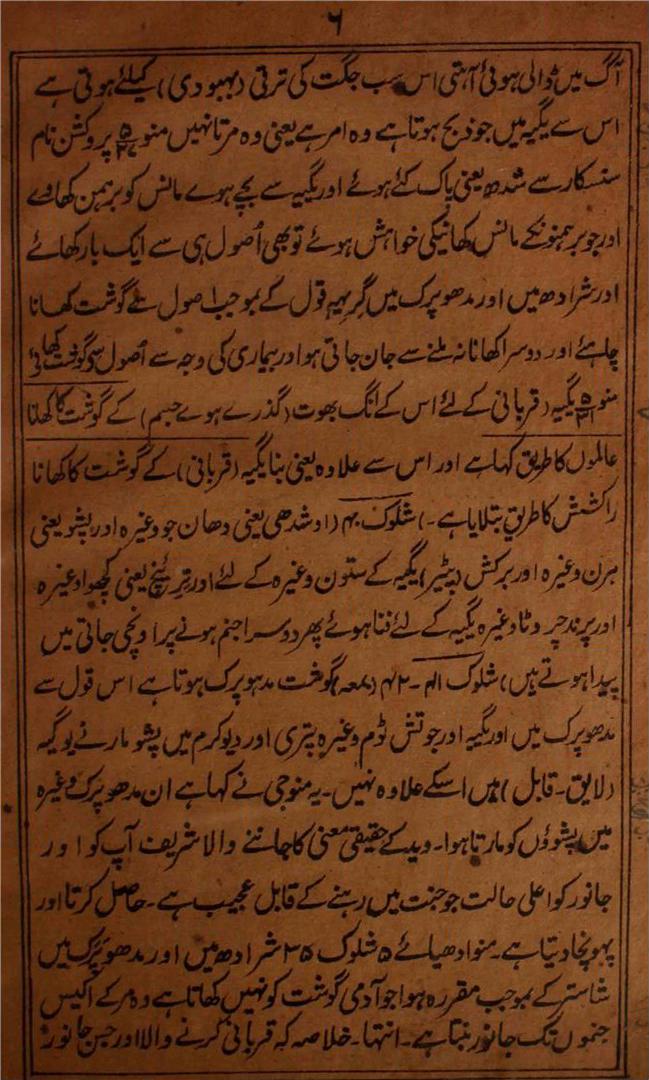 ۶
آگ میں ڈالی ہوئی آہتی اس سب جگت کی ترقی (بہبودی) کیلئے ہوتی ہے
اس سے یگیہ میں جو ذبح ہوتا ہے وہ امر ہے یعنی وہ مرتا نہیں منو ۵/۲۷ پروکشن نام
سنسکار سے شدھ یعنی پاک کئے ہوئے اور یگیہ سے بچے ہوے مانس کو برہمن کھاوے
اور جو برہمنونکے مانس کھانیکی خواہش ہوئے تو بھی اُصول ہی سے ایک بار کھائے
اور شرادھ میں اور مدھوپرک میں گریہیہ قول کے بموجب اصول سے گوشت کھانا
چاہئے اور دوسرا کھانا نہ ملنے سے جان جاتی ہو اور بیماری کی وجہ سے اُصول سی گوشت کھائے
منو ۵/۳۱ یگیہ (قربانی کے لئے اس کے انگ بھوت (گذرے ہوے جسم) کے گوشت کا کھانا
عالموں کا طریق کہا ہے اور اس سے علاوہ یعنی بنا یگیہ (قربانی) کے گوشت کا کھانا
راکشش کا طریق بتلایا ہے۔) شلوک ۴۰ (اوشدھی یعنی دھان جو وغیرہ اور پشو یعنی
ہرن وغیرہ اور برکش (پیڑ) یگیہ کے ستون وغیرہ کے لئے اور ترئیخ یعنی کچھوا وغیرہ
اور پرند چروٹا وغیرہ یگیہ کے لئے فنا ہوئے پھر دوسرا جنم ہونے پر اونچی جاتی میں
پیدا ہوتے ہیں) شلوک ۴۱۔۴۲ (بمعہ) گوشت مدہوپرک ہوتا ہے اس قول سے
مدھوپرک میں اور یگیہ اور جوتش ٹوم وغیرہ پتری اور دیوکرم میں پشو مارنے یوگیہ
(لایق۔ قابل) ہیں اسکے علاوہ نہیں۔ یہ منوجی نے کہا ہے ان مدھوپرک وغیرہ
میں پشوؤں کو مارتا ہوا۔ وید کے حقیقی معنی کا جاننے والا شریف آپ کو اور
جانور کو اعلی حالت جو جنت میں رہنے کے قابل عجیب ہے۔ حاصل کرتا اور
پہونچا دیتا ہے۔ منو ادھیائے ۵ شلوک ۳۵ شرادھ میں اور مدھوپرک میں
شاستر کے بموجب مقررہ ہوا جو آدمی گوشت کو نہیں کھاتا ہے وہ مر کے اکیس
جنموں تک جانور بنتا ہے۔ انتہا۔ خلاصہ کہ قربانی کرنے والا اور جس جانور